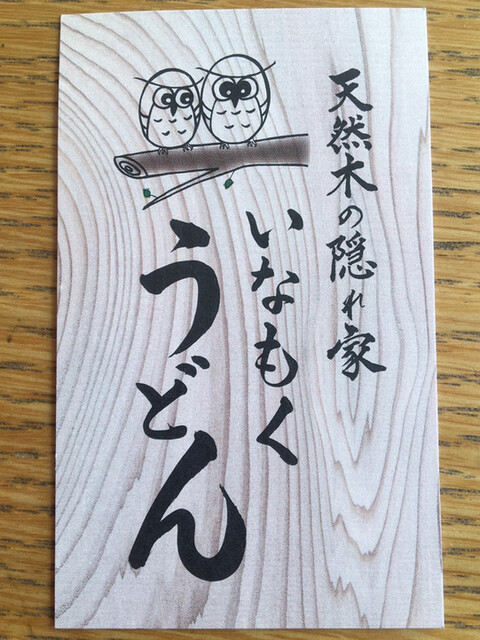 天然木の隠れ家
いなもく
うどん